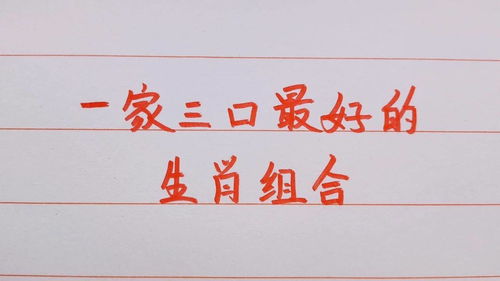 一家三口最好的
生肖组合